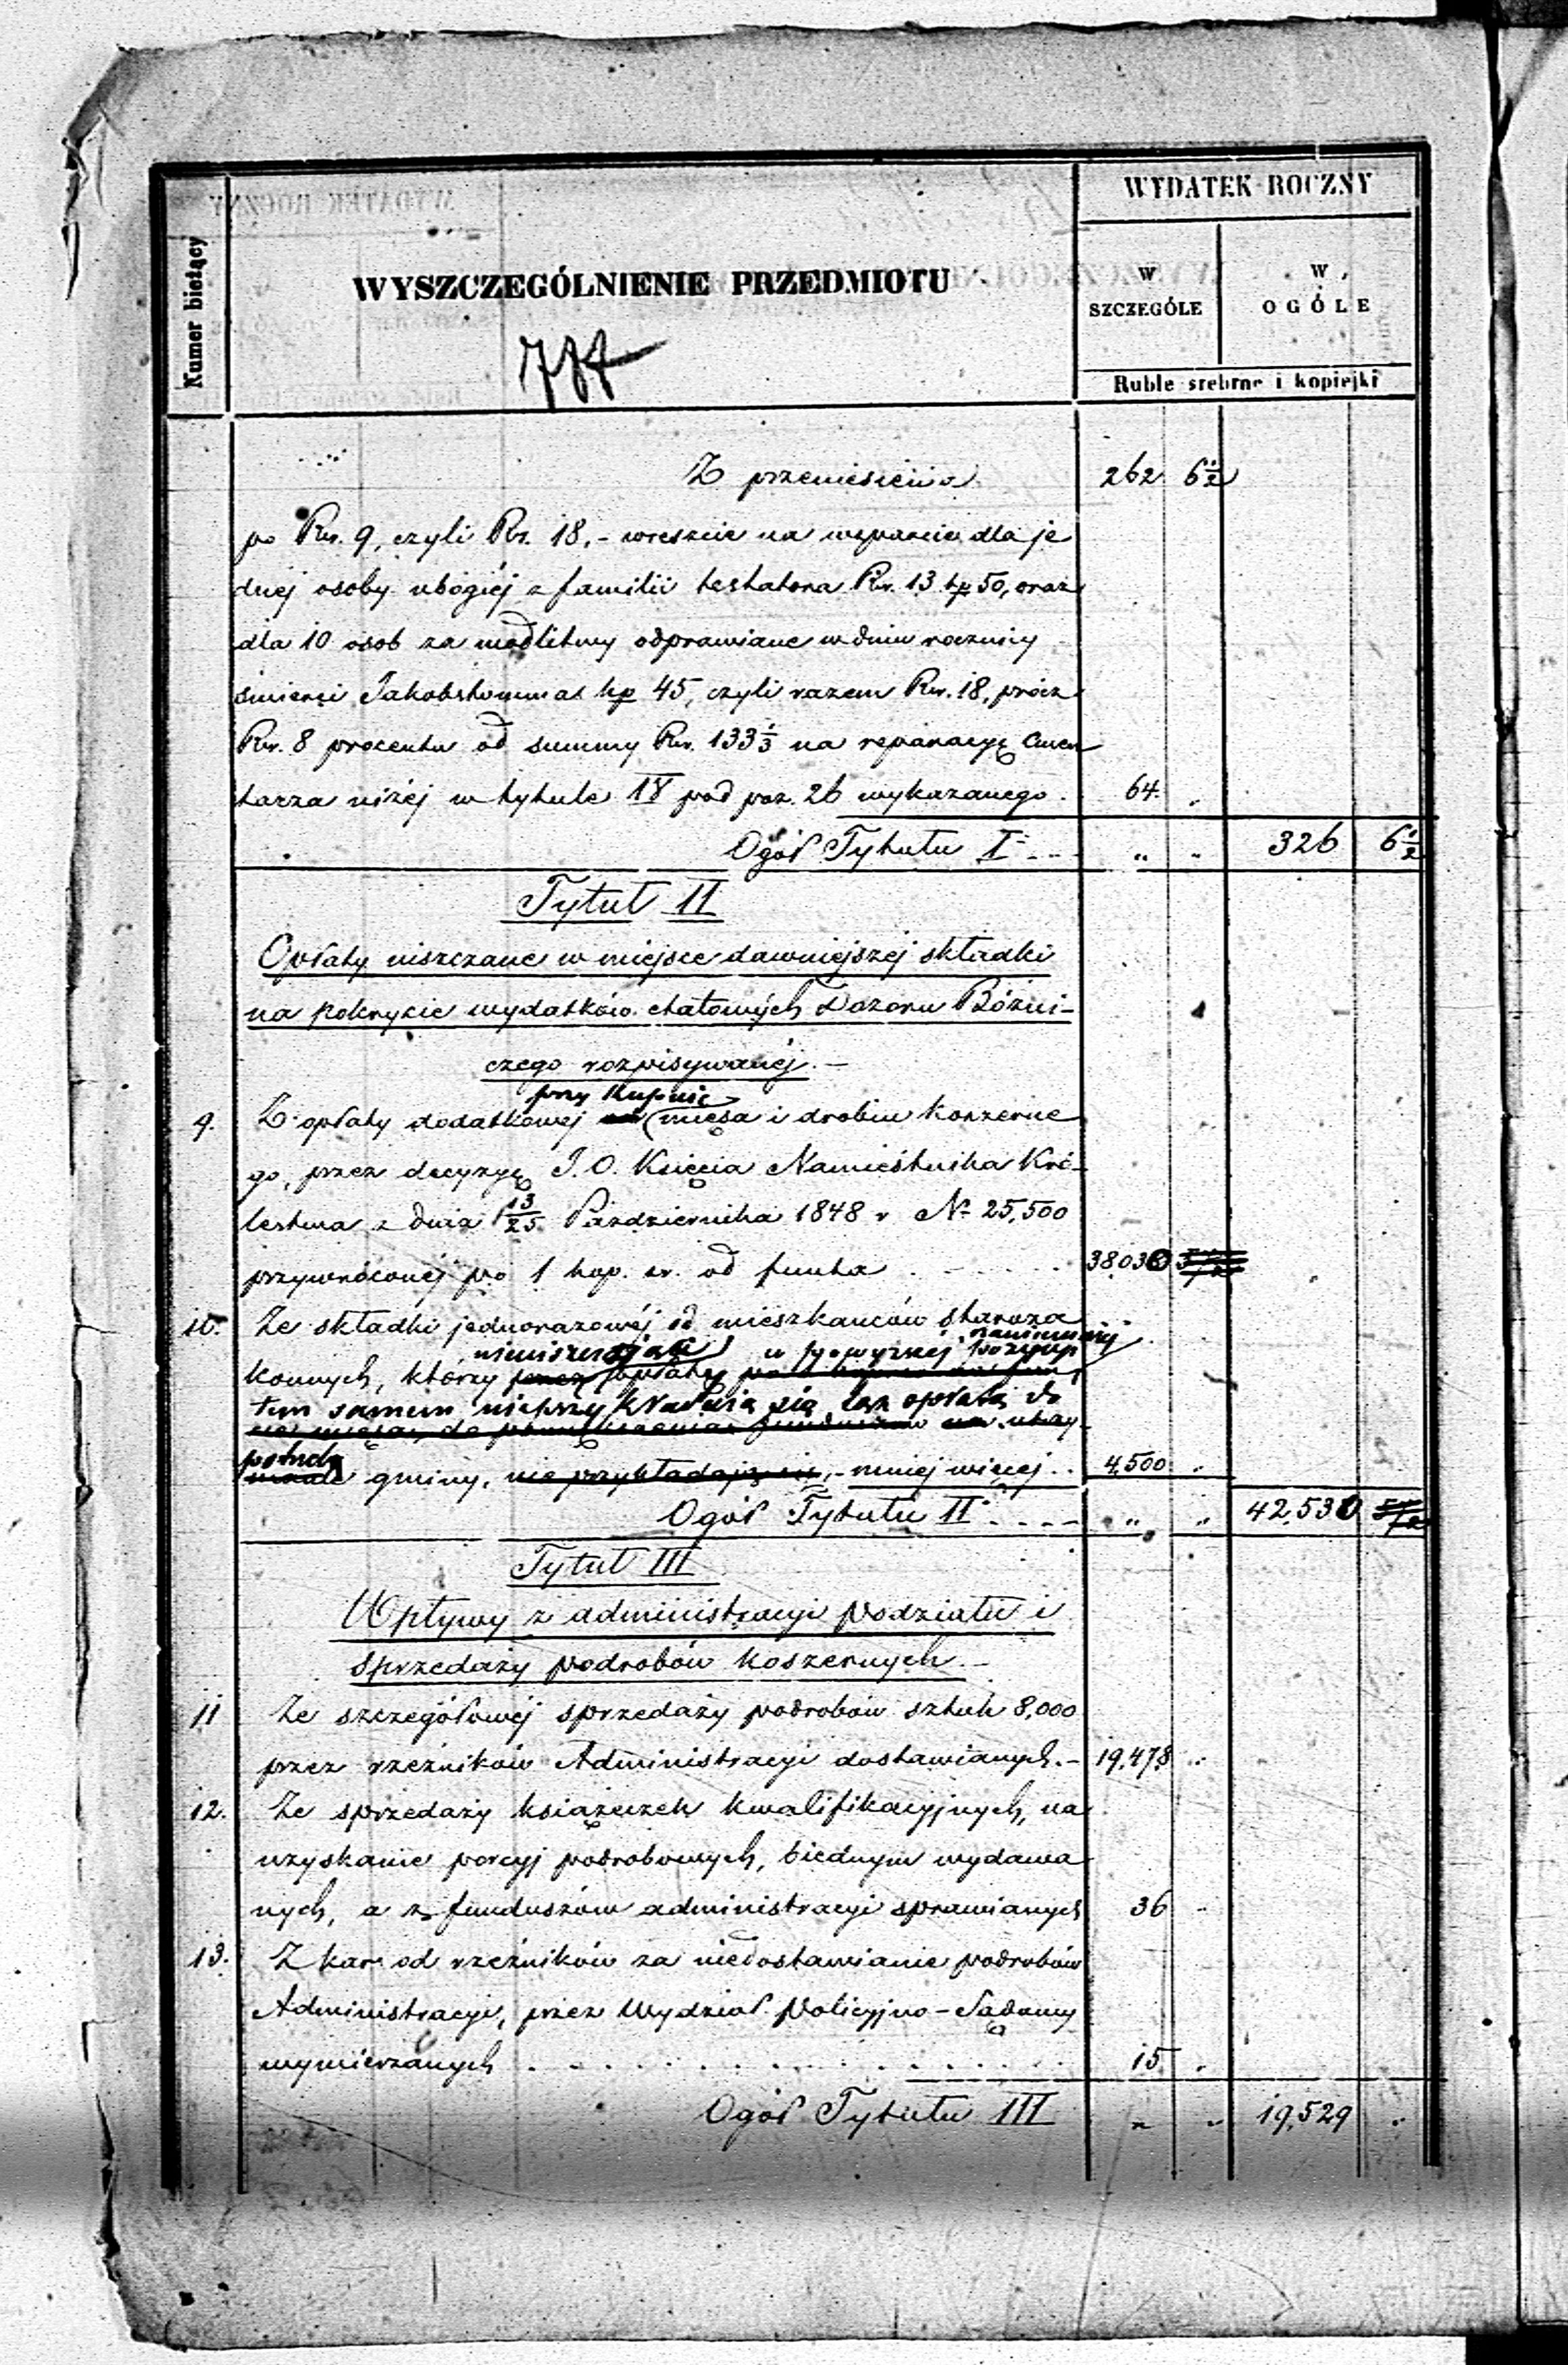 Numer bieżący
WYSZCZEGÓLNIENIE PRZEDMIOTU
WYDATEK ROCZNY
W SZCZEGÓLE
W OGÓLE
Ruble srebrne i kopiejki
Z przeniesienia 262 6½
po Rsr. 9, czyli Rs. 18, – wreszcie na wsparcie dla je
dnej osoby ubogiéj z familii testatora Rsr. 13 kp 50, oraz
dla 10 osob za modlitwy odprawiane w dniu rocznicy
śmierci Jakobshonna kp 45, czyli razem Rsr. 18, prócz
Rsr. 8 procentu od summy Rsr. 133⅓ na reparacyę Cmen
tarza niżéj w tytule IV pod poz. 26 wykazanego . 64. „
Ogół Tytułu I „ „ 326 6½
Tytuł II
Opłaty uiszczane w miejsce dawniejszéj składki
na pokrycie wydatków etatowych Dozoru Bóżni-
czego rozpisywanéj. –
przy kupnie
9. Z opłaty dodatkowej mięsa i drobiu koszerne
go, przez decyzyę J. O. Księcia Namiestnika Kró-
lestwa z dnia 13/25 Października 1848 r № 25,500
przywróconéj po 1 kop. sr. od funta . 38,030
10. Ze składki jednorazowéj od mieszkańców staroza
nieuiszczając w powyższéj pozycyi namienionéj
konnych, którzy opłaty
tem samem nieprzykładają się tą opłatą do
potrzeb gminy, – mniej więcej . . 4,500 „
Ogół Tytułu II „ „ 42,530
Tytuł III
Wpływy z administracyi podziału i
sprzedaży podrobów koszernych. –
11 Ze szczegółowéj sprzedaży podrobów sztuk 8,000
przez rzeźników Administracyi dostawianych. – 19,478 „
12. Ze sprzedaży książeczek kwalifikacyjnych, na
uzyskanie porcyj podrobowych, biednym wydawa
nych, a z funduszów administracyi sprawianych 36 „
13. Z kar od rzeźników za niedostawianie podrobów
Administracyi, przez Wydział Policyjno-Sądowy
wymierzanych . . . 15 „
Ogół Tytułu III „ „ 19,529 „